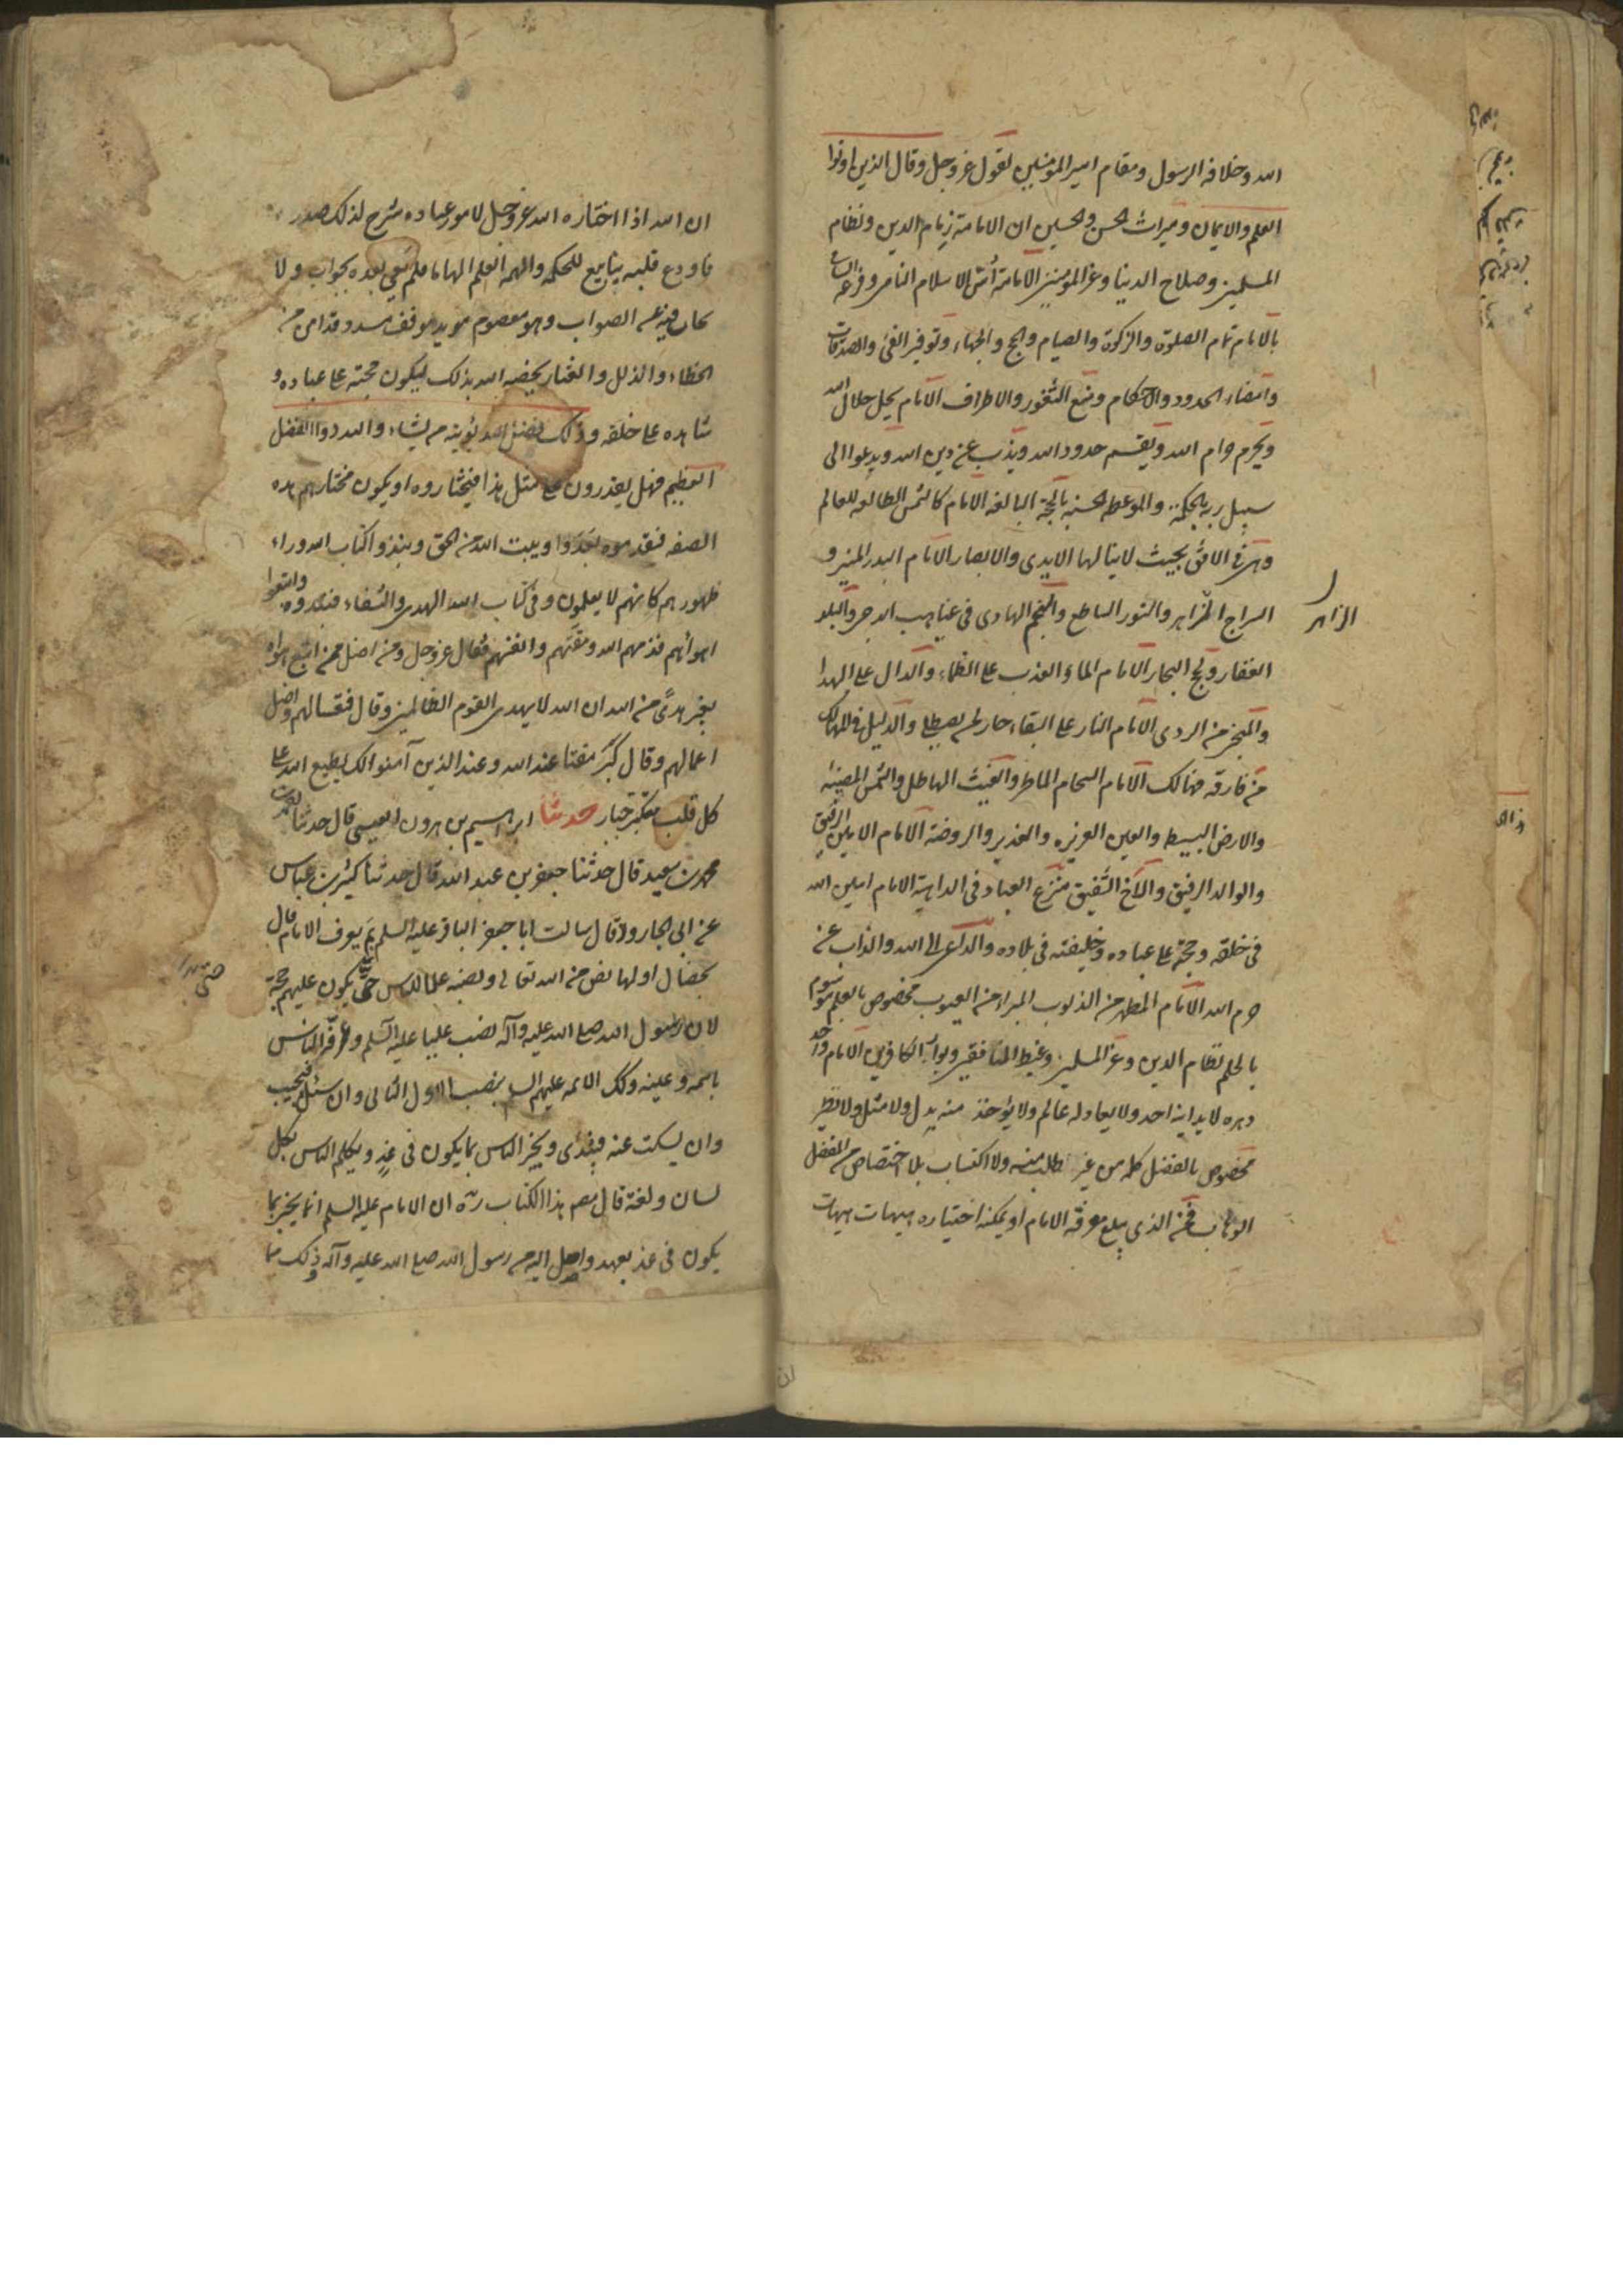 الله وخلافه الرسول ومقام امير المؤمنين لقول عزوجل وقال الذين اوتوا
العلم والايمان وميراث الحسن والحسين ان الامامة زمام الدين ونظام
المسلمين وصلاح الدنيا وعز المؤمنين الامامة اُسّ الاسلام النامى وفرعه السامى
بالامام تمام الصلوة والزكوة والصيام والحج والجهاد وتوفير الفئ والصدقات
وامضاء الحدود والاحكام ومنع الثغور والاطراف الامام يحل حلال الله
ويحرم حرام الله ويقيم حدود الله ويذب عن دين الله ويدعوا الى
سبيل ربه بالحكمة والموعظه الحسنه بالحجة البالغه الامام كالشمس الطالعه للعالم
وهى فى الافق بحيث لا ينالها الايدى والابصار الامام البدر المنير و
السراج الزاهر والنور الساطع والنجم الهادى فى غياهب الدجى والبلد
الزاهر
القفار ولجج البحار الامام الماء العذب على الظماء والدال على الهدا
والمنجى من الردى الامام النار على البقاء حار لمن يصطلى والدليل فى المهالك
من فارقه فهالك الامام السحاب الماطر والغيث الهاطل والشمس المضيئة
والارض البسيط والعين العزيزه والغدير والروضة الامام الامين الرفيق
والوالد الرفيق والاخ الشفيق مفزع العباد فى الداهية الامام امين الله
فى خلقه وحجته على عباده وخليفته فى بلاده والداعى الى الله والذاب عن
حرم الله الامام المطهر من الذنوب المبراء من العيوب مخصوص بالعلم موسوم
بالحلم نظام الدين وعز المسلمين وغيظ المنافقين وبوار الكافرين الامام واحد
دهره لا يدانيه احد ولا يعادله عالم ولا يؤخذ منه بدل ولا مثل ولا نظير
مخصوص بالفضل كله من غير طلب منه ولا اكتساب بل اختصاص من المفضل
الوهاب فمن الذى يبلغ معرفة الامام او يمكنه اختياره هيهات هيهات
ان الله اذا اختاره الله عزوجل لامور عباده شرح لذلك صدره
فاودع قلبه ينابيع الحكمه والهمه العلم الهاما فلم يعى بعده بجواب ولا
الصواب وهو معصوم مويد موفق مسدد قد امن من
الخطاء والزلل والعثار يخصه الله بذلك ليكون حجته على عباده و
شاهده على خلقه وذلك فضل الله يؤتيه من يشاء والله ذوا الفضل
العظيم فهل يقدرون على مثل هذا فيختاروه او يكون مختارهم بهذه
الصفه فيقدموه تعدّوا وبيت الله من الحق ونبذوا كتاب الله وراء
ظهورهم كانهم لا يعلمون وفى كتاب الله الهدى والشفاء فنبذوه واتبعوا
اهوائهم فذمهم الله ومقتهم وانفسهم فقال عزوجل ومن اضل ممن اتبع هواه
بغير هدىً من الله ان الله لا يهدى القوم الظالمين وقال فتعسا لهم واضل
اعمالهم وقال كَبُر مقتا عند الله وعند الذين آمنوا كذلك يطبع الله على
كل قلب متكبر جبار حدثنا ابراهيم بن هرون العيسى قال حدثنا
محمد بن سعيد قال حدثنا جعفر بن عبد الله قال حدثنا كثير بن عياش
عن ابى الجارود قال سالت ابا جعفر الباقر عليه السلم بِمَ يعرف الامام قال
بخصال اولها نص من الله تعالى ونصبه علما للناس حتى يكون عليهم حجة
لان رسول الله صلى الله عليه وآله نصب عليا عليه السلم وعرفه الناس
باسمه وعينه وكك الائمه عليهم الس ينصب الاول الثانى وان سئل فيجيب
وان يسكت عنه فيبتدى ويخبر الناس بما يكون فى غدٍ ويكلم الناس بكل
لسان ولغة قال مصـ هذا الكتاب ره ان الامام عليه السلم انما يخبر بما
يكون فى غد بعهد واصل اليه من رسول الله صلى الله عليه وآله وذلك مما